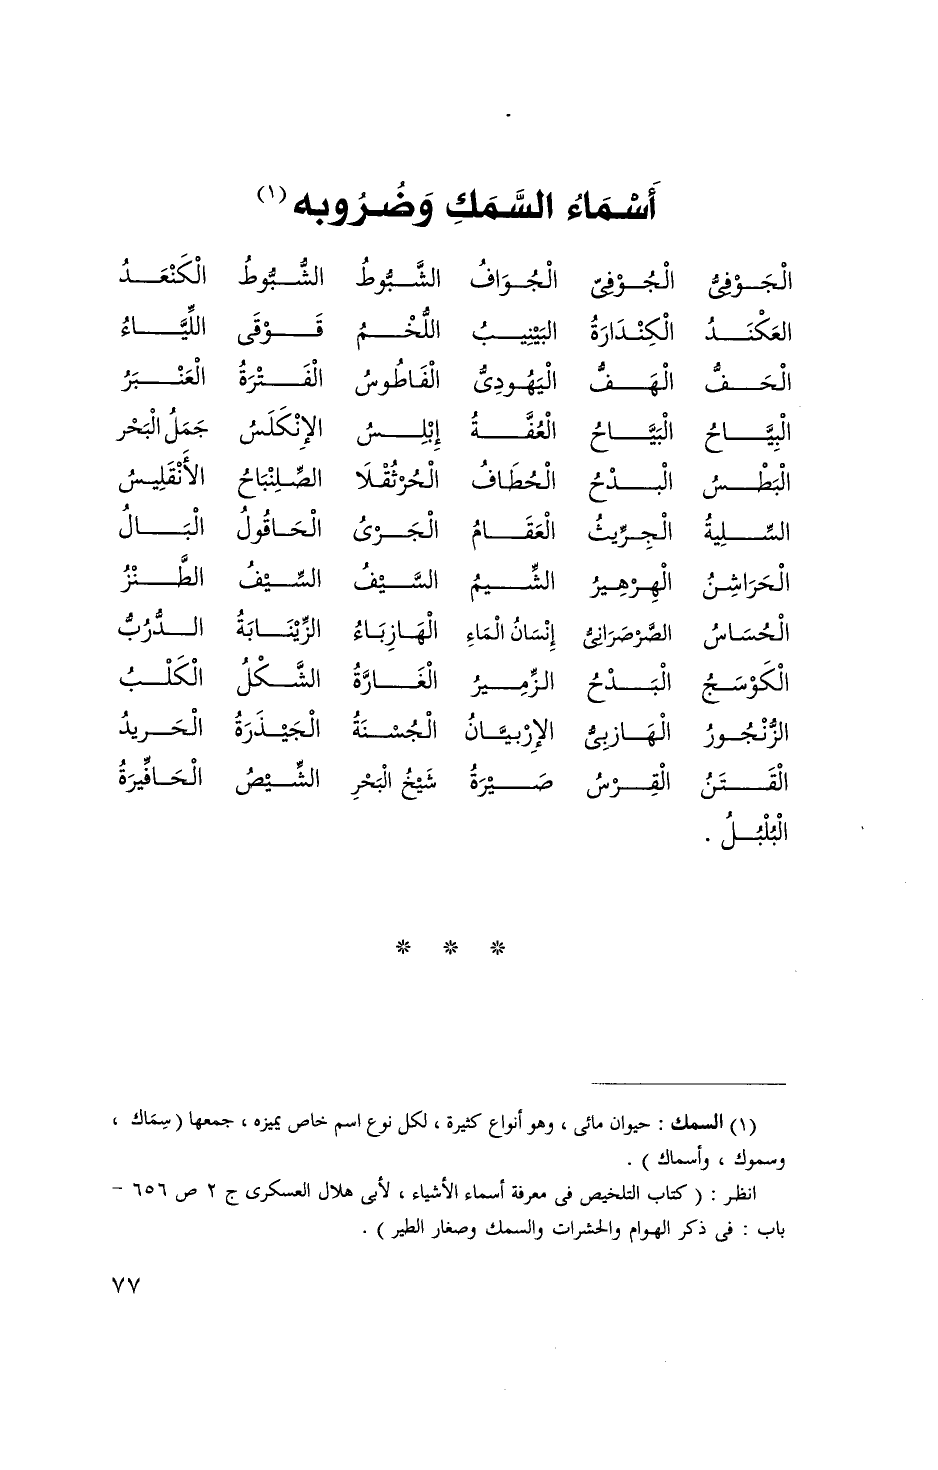 أَسْمَاءُ السَّمَكِ وَضُرُوبِه (١)
الْجَوْفِيُّ الْجُوْفِيّ الْجُوَافُ الشَّبُّوطُ الشُّبُّوطُ الْكَنْعَدُ
العَكْنَدُ الْكِنْدَارَةُ البَيْنِيبُ اللُّخْمُ قَوْقَى اللِّيَّاءُ
الْحَفُّ الْهَفُّ الْيَهُودِىُّ الْفَاطُوسُ الْفَتْرَةُ الْعَنْبَرُ
الْبِيَّاحُ الْبَيَّاحُ الْعُفَّةُ إِبْلِسُ الإِنْكَلَسُ جَمَلُ الْبَحْر
الْبَطْسُ الْبَدْحُ الْخُطَافُ الْخُرْثُقْلَا الصِّلِنْبَاحُ الأَنْقَلِيسُ
السِّلِيةُ الْجِرِّيثُ الْعَقَامُ الْجَرْىُ الْحَاقُولُ الْبَالُ
الْخَرَاشِنُ الْهِرْهِيرُ الشِّيمُ السَّيْفُ السِّيْفُ الطَّنْزُ
الْحُسَاسُ الصَّرْصَرَانِىُّ إِنْسَانُ الْمَاءِ الْهَازِبَاءُ الزِّيْنَابَةُ الدُّرُبُّ
الْكَوْسَجُ الْبَدْحُ الزِّمِيرُ الْغَارَّةُ الشَّكْلُ الْكَلْبُ
الزُّنْجُورُ الْهَازِبِىُّ الإِرْبِيَّانُ الْجُسْنَةُ الْجَيْذَرَةُ الْحَرِيدُ
الْقَتَنُ الْقِرْسُ صَيْرَةُ شَيْخُ الْبَحْرِ الشِّيْصُ الْحَافِّيرَةُ
الْبُلْبُلُ .
* * *
(١) السمك : حيوان مائى ، وهو أنواع كثيرة ، لكل نوع اسم خاص يميزه ، جمعها ( سِمَاك ،
وسموك ، وأسماك ) .
انظر : ( كتاب التلخيص فى معرفة أسماء الأشياء ، لأبى هلال العسكرى ج ٢ ص ٦٥٦ –
باب : فى ذكر الهوام والحشرات والسمك وصغار الطير ) .
٧٧